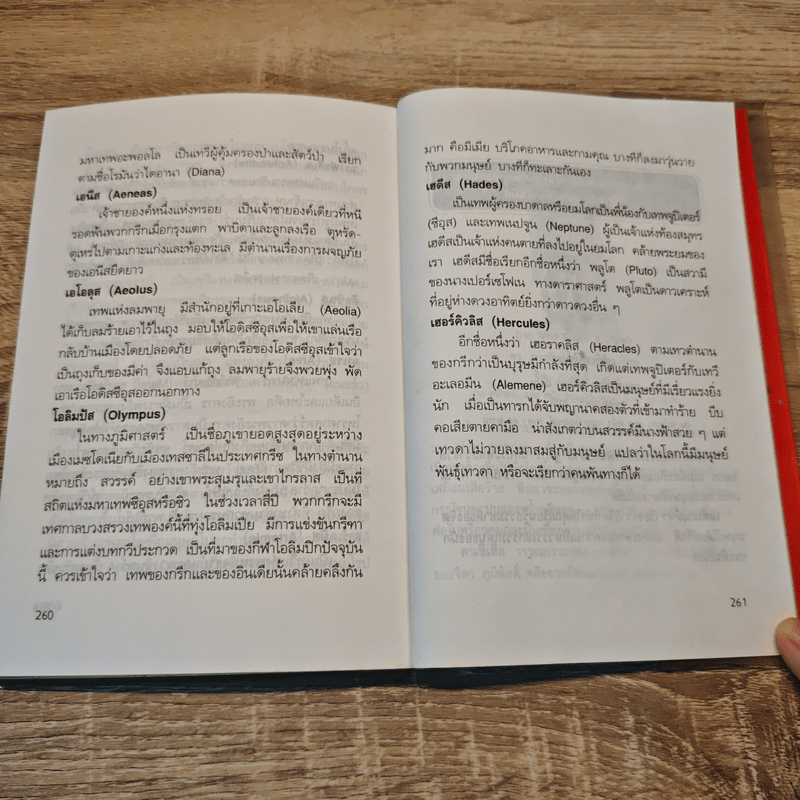 มหาเทพอะพอลโล เป็นเทวีผู้คุ้มครองป่าและสัตว์ป่า เรียก
ตามชื่อโรมันว่าไดอานา (Diana)
เอนีส (Aeneas)
เจ้าชายองค์หนึ่งแห่งทรอย เป็นเจ้าชายองค์เดียวที่หนี
รอดพ้นพวกกรีกเมื่อกรุงแตก พาบิดาและลูกลงเรือ ตุหรัด-
ตุเหร่ไปตามเกาะแก่งและท้องทะเล มีตำนานเรื่องการผจญภัย
ของเอนีสยืดยาว
เอโอลุส (Aeolus)
เทพแห่งลมพายุ มีสำนักอยู่ที่เกาะเอโอเลีย (Aeolia)
ได้เก็บลมร้ายเอาไว้ในถุง มอบให้โอดิสซีอุสเพื่อให้เขาแล่นเรือ
กลับบ้านเมืองโดยปลอดภัย แต่ลูกเรือของโอดิสซีอุสเข้าใจว่า
เป็นถุงเก็บของมีค่า จึงแอบแก้ถุง ลมพายุร้ายจึงพวยพุ่ง พัด
เอาเรือโอดิสซีอุสออกนอกทาง
โอลิมปัส (Olympus)
ในทางภูมิศาสตร์ เป็นชื่อภูเขายอดสูงสุดอยู่ระหว่าง
เมืองเมซโดเนียกับเมืองเทสซาลีในประเทศกรีซ ในทางตำนาน
หมายถึง สวรรค์ อย่างเขาพระสุเมรุและเขาไกรลาส เป็นที่
สถิตแห่งมหาเทพซีอุสหรือซิว ในช่วงเวลาสี่ปี พวกกรีกจะมี
เทศกาลบวงสรวงเทพองค์นี้ที่ทุ่งโอลิมเปีย มีการแข่งขันกรีฑา
และการแต่งบทกวีประกวด เป็นที่มาของกีฬาโอลิมปิกปัจจุบัน
นี้ ควรเข้าใจว่า เทพของกรีกและของอินเดียนั้นคล้ายคลึงกัน
260
มาก คือมีเมีย บริโภคอาหารและกามคุณ บางทีก็ลงมาวุ่นวาย
กับพวกมนุษย์ บางทีก็ทะเลาะกันเอง
เฮดีส (Hades)
เป็นเทพผู้ครองบาดาลหรือยมโลกเป็นพี่น้องกับเทพจูปิเตอร์
(ซีอุส) และเทพเนปจูน (Neptune) ผู้เป็นเจ้าแห่งท้องสมุทร
เฮดีสเป็นเจ้าแห่งคนตายที่ลงไปอยู่ในยมโลก คล้ายพระยมของ
เรา เฮดีสมีชื่อเรียกอีกชื่อหนึ่งว่า พลูโต (Pluto) เป็นสวามี
ของนางเปอร์เซโฟเน ทางดาราศาสตร์ พลูโตเป็นดาวเคราะห์
ที่อยู่ห่างดวงอาทิตย์ยิ่งกว่าดาวดวงอื่น ๆ
เฮอร์คิวลิส (Hercules)
อีกชื่อหนึ่งว่า เฮอราคลิส (Heracles) ตามเทวตำนาน
ของกรีกว่าเป็นบุรุษมีกำลังที่สุด เกิดแต่เทพจูปิเตอร์กับเทวี
อะเลอมีน (Alemene) เฮอร์คิวลิสเป็นมนุษย์มีเรี่ยวแรงยิ่ง
นัก เมื่อเป็นทารกได้จับพญานาคสองตัวที่เข้ามาทำร้าย บีบ
คอเสียตายคามือ น่าสังเกตว่าบนสวรรค์มีนางฟ้าสวย ๆ แต่
เทวดาไม่วายลงมาสมสู่กับมนุษย์ แปลว่าในโลกนี้มีมนุษย์
พันธุ์เทวดา หรือจะเรียกว่าคนพันทางก็ได้
261